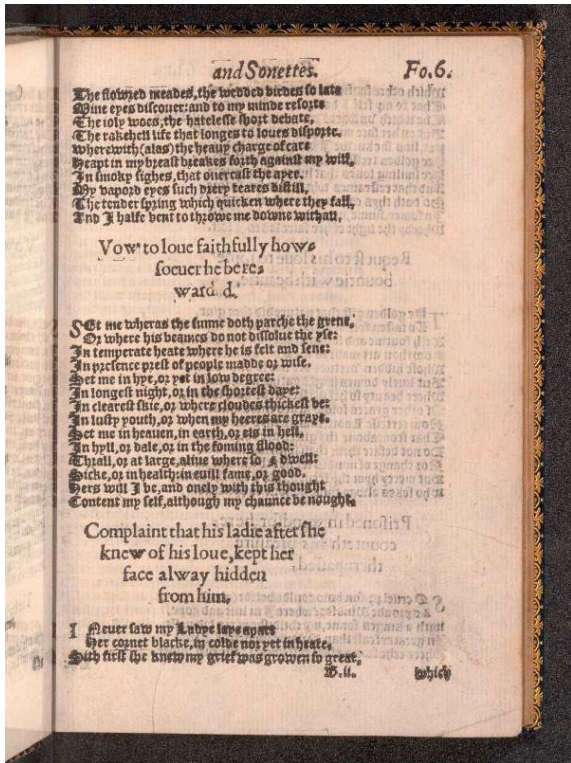 and Sonettes. Fo.6.
The flowred meades, the wedded birdes so late
Mine eyes discouer: and to my minde resorte
The ioly woes, the hatelesse short debate,
The rakehell life that longes to loues disporte.
Wherewith (alas) the heauy charge of care
Heapt in my breast breakes forth against my will,
In smoky sighes, that ouercast the ayer.
My vapord eyes such drery teares distill,
The tender spring which quicken where they fall,
And I halfe bent to throwe me downe withall.
Vow to loue faithfully how-
soeuer he be re-
ward d.
SEt me wheras the sunne doth parche the grene,
Or where his beames do not dissolue the yse:
In temperate heate where he is felt and sene:
In presence prest of people madde or wise.
Set me in hye, or yet in low degree:
In longest night, or in the shortest daye:
In clearest skie, or where cloudes thickest be:
In lusty youth, or when my heeres are graye.
Set me in heauen, in earth, or els in hell,
In hyll, or dale, or in the foming flood:
Thrall, or at large, aliue where so I dwell:
Sicke, or in health: in euill fame, or good.
Hers will I be, and onely with this thought
Content my self, although my chaunce be nought.
Complaint that his ladie after she
knew of his loue, kept her
face alway hidden
from him.
I Neuer saw my Ladye laye apart
Her cornet blacke, in colde nor yet in heate,
Sith first she knew my grief was growen so great,
B.ii. which